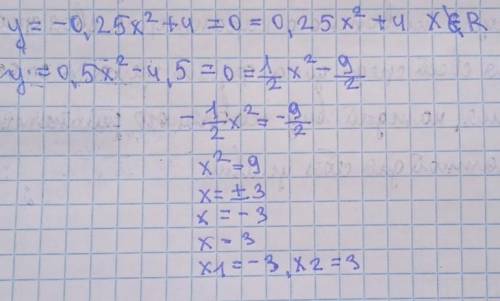 y = -0,25x² + 4 = 0 = 0,25x² + 4 x∉R
y = 0,5x² - 4,5 = 0 = 1/2 x² - 9/2
- 1/2 x² = - 9/2
x² = 9
x = ± 3
x = - 3
x = 3
x1 = -3, x2 = 3